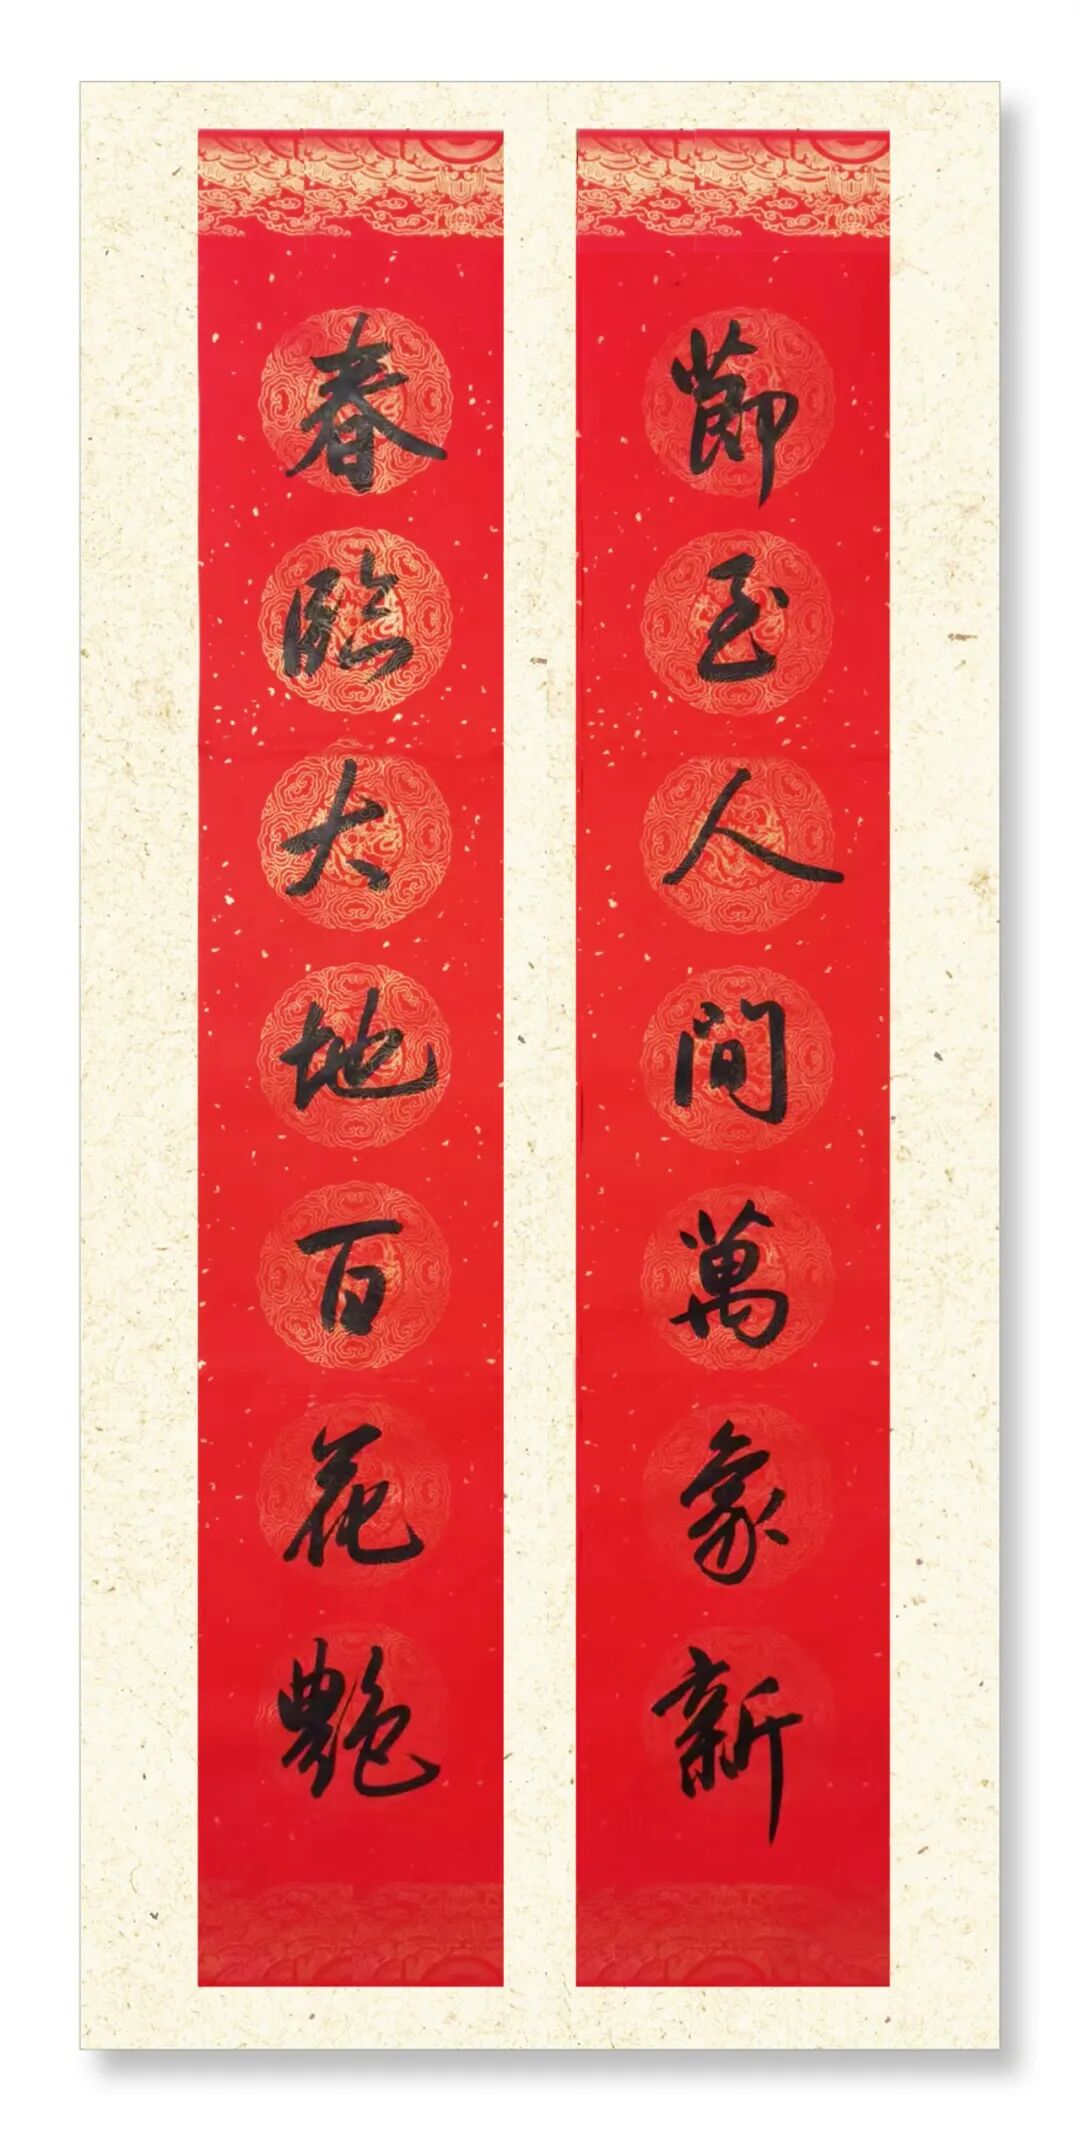 節至人間萬象新
春臨大地百花艶